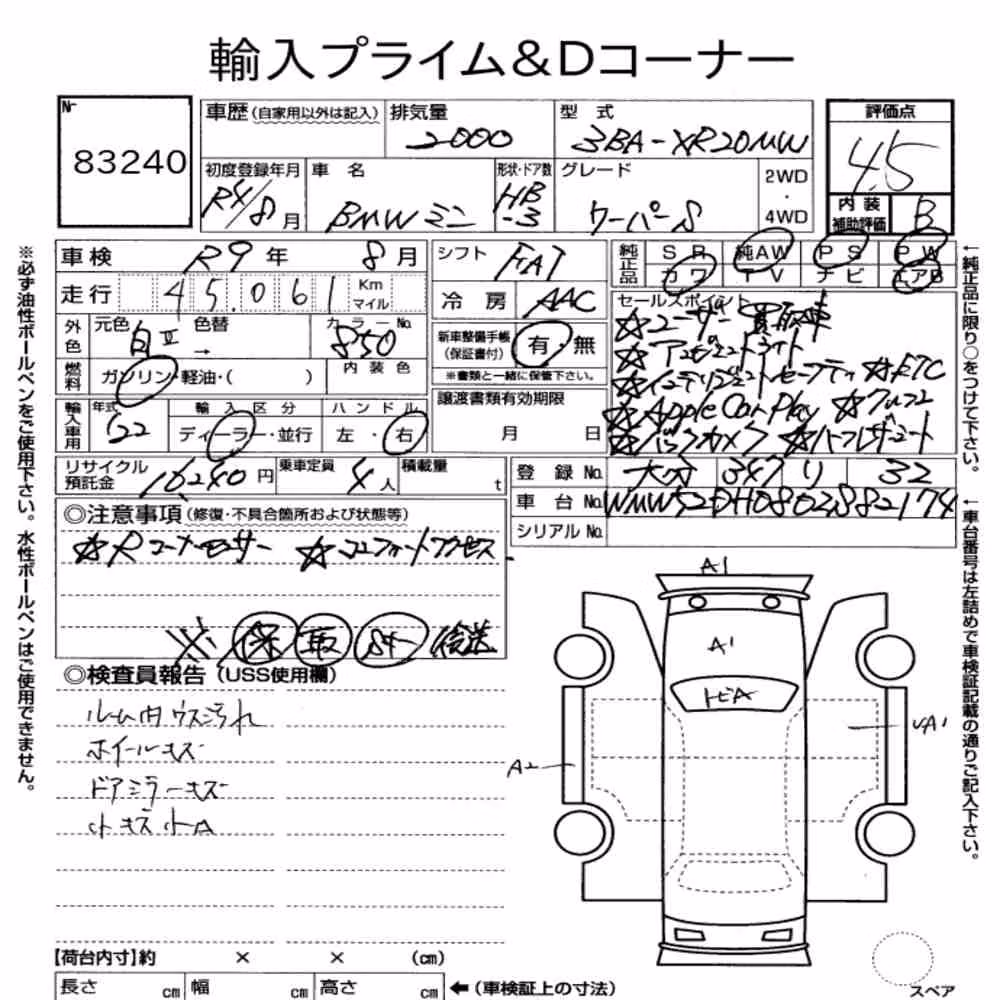 輸入プライム&Dコーナー
№
83240
車歴 (自家用以外は記入)
排気量
2000
型 式
3BA-XR20MW
評価点
4.5
初度登録年月
R4/8月
車 名
BMWミニ
形状・ドア数
HB
-3
グレード
クーパーS
2WD
・
4WD
内 装
補助評価
B
車検 R9年 8月
シフト FAT
走行 45,061 Km
マイル
冷 房 AAC
純正品
SR 純AW PS PW
カワ TV ナビ エアB
外色
元色 白Ⅱ
色替 →
カラーNo. 850
新車整備手帳
(保証書付)
有・無
※書類と一緒に保管下さい。
燃料
ガソリン・軽油・( )
内 装 色
セールスポイント
☆ユーザー買取車
☆アンビエントライト
☆インテリジェントセーフティ ☆ETC
☆Apple CarPlay
☆バックカメラ
輸入車用
年式
22
輸 入 区 分
ディーラー・並行
ハ ン ド ル
左 ・ 右
譲渡書類有効期限
月 日
リサイクル
預託金
16,240円
乗車定員
4人
積載量
t
登 録 No. 大分 347 り 32
車 台 No. WMW52DH0802S82174
シリアル No.
◎注意事項 (修復・不具合箇所および状態等)
☆Rコーナーセンサー ☆コンフォートアクセス
※ 保 取 SK 後送
◎検査員報告 (USS使用欄)
ルーム内ウス汚れ
ホイールキズ
ドアミラーキズ
小キズ小A
A1
A1
トビA
A2
UA1
【荷台内寸】約 × × (cm)
長さ cm 幅 cm 高さ cm
←(車検証上の寸法)
スペア
※必ず油性ボールペンをご使用下さい。水性ボールペンはご使用できません。
←純正品に限り○をつけて下さい。
←車台番号は左詰めで車検証記載の通りご記入下さい。